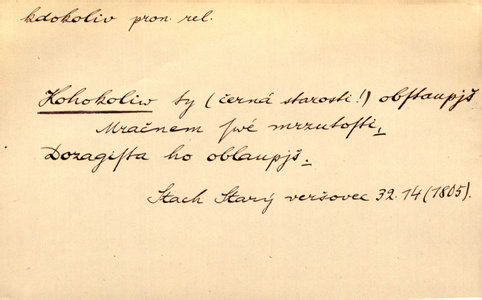 kdokoliv pron. rel.
Kohokoliw ty (černá starosti!) obstaupjš
Mračnem swé mrzutosti,
Dozagista ho oblaupjš.
Stach Starý veršovec 32.14 (1805).